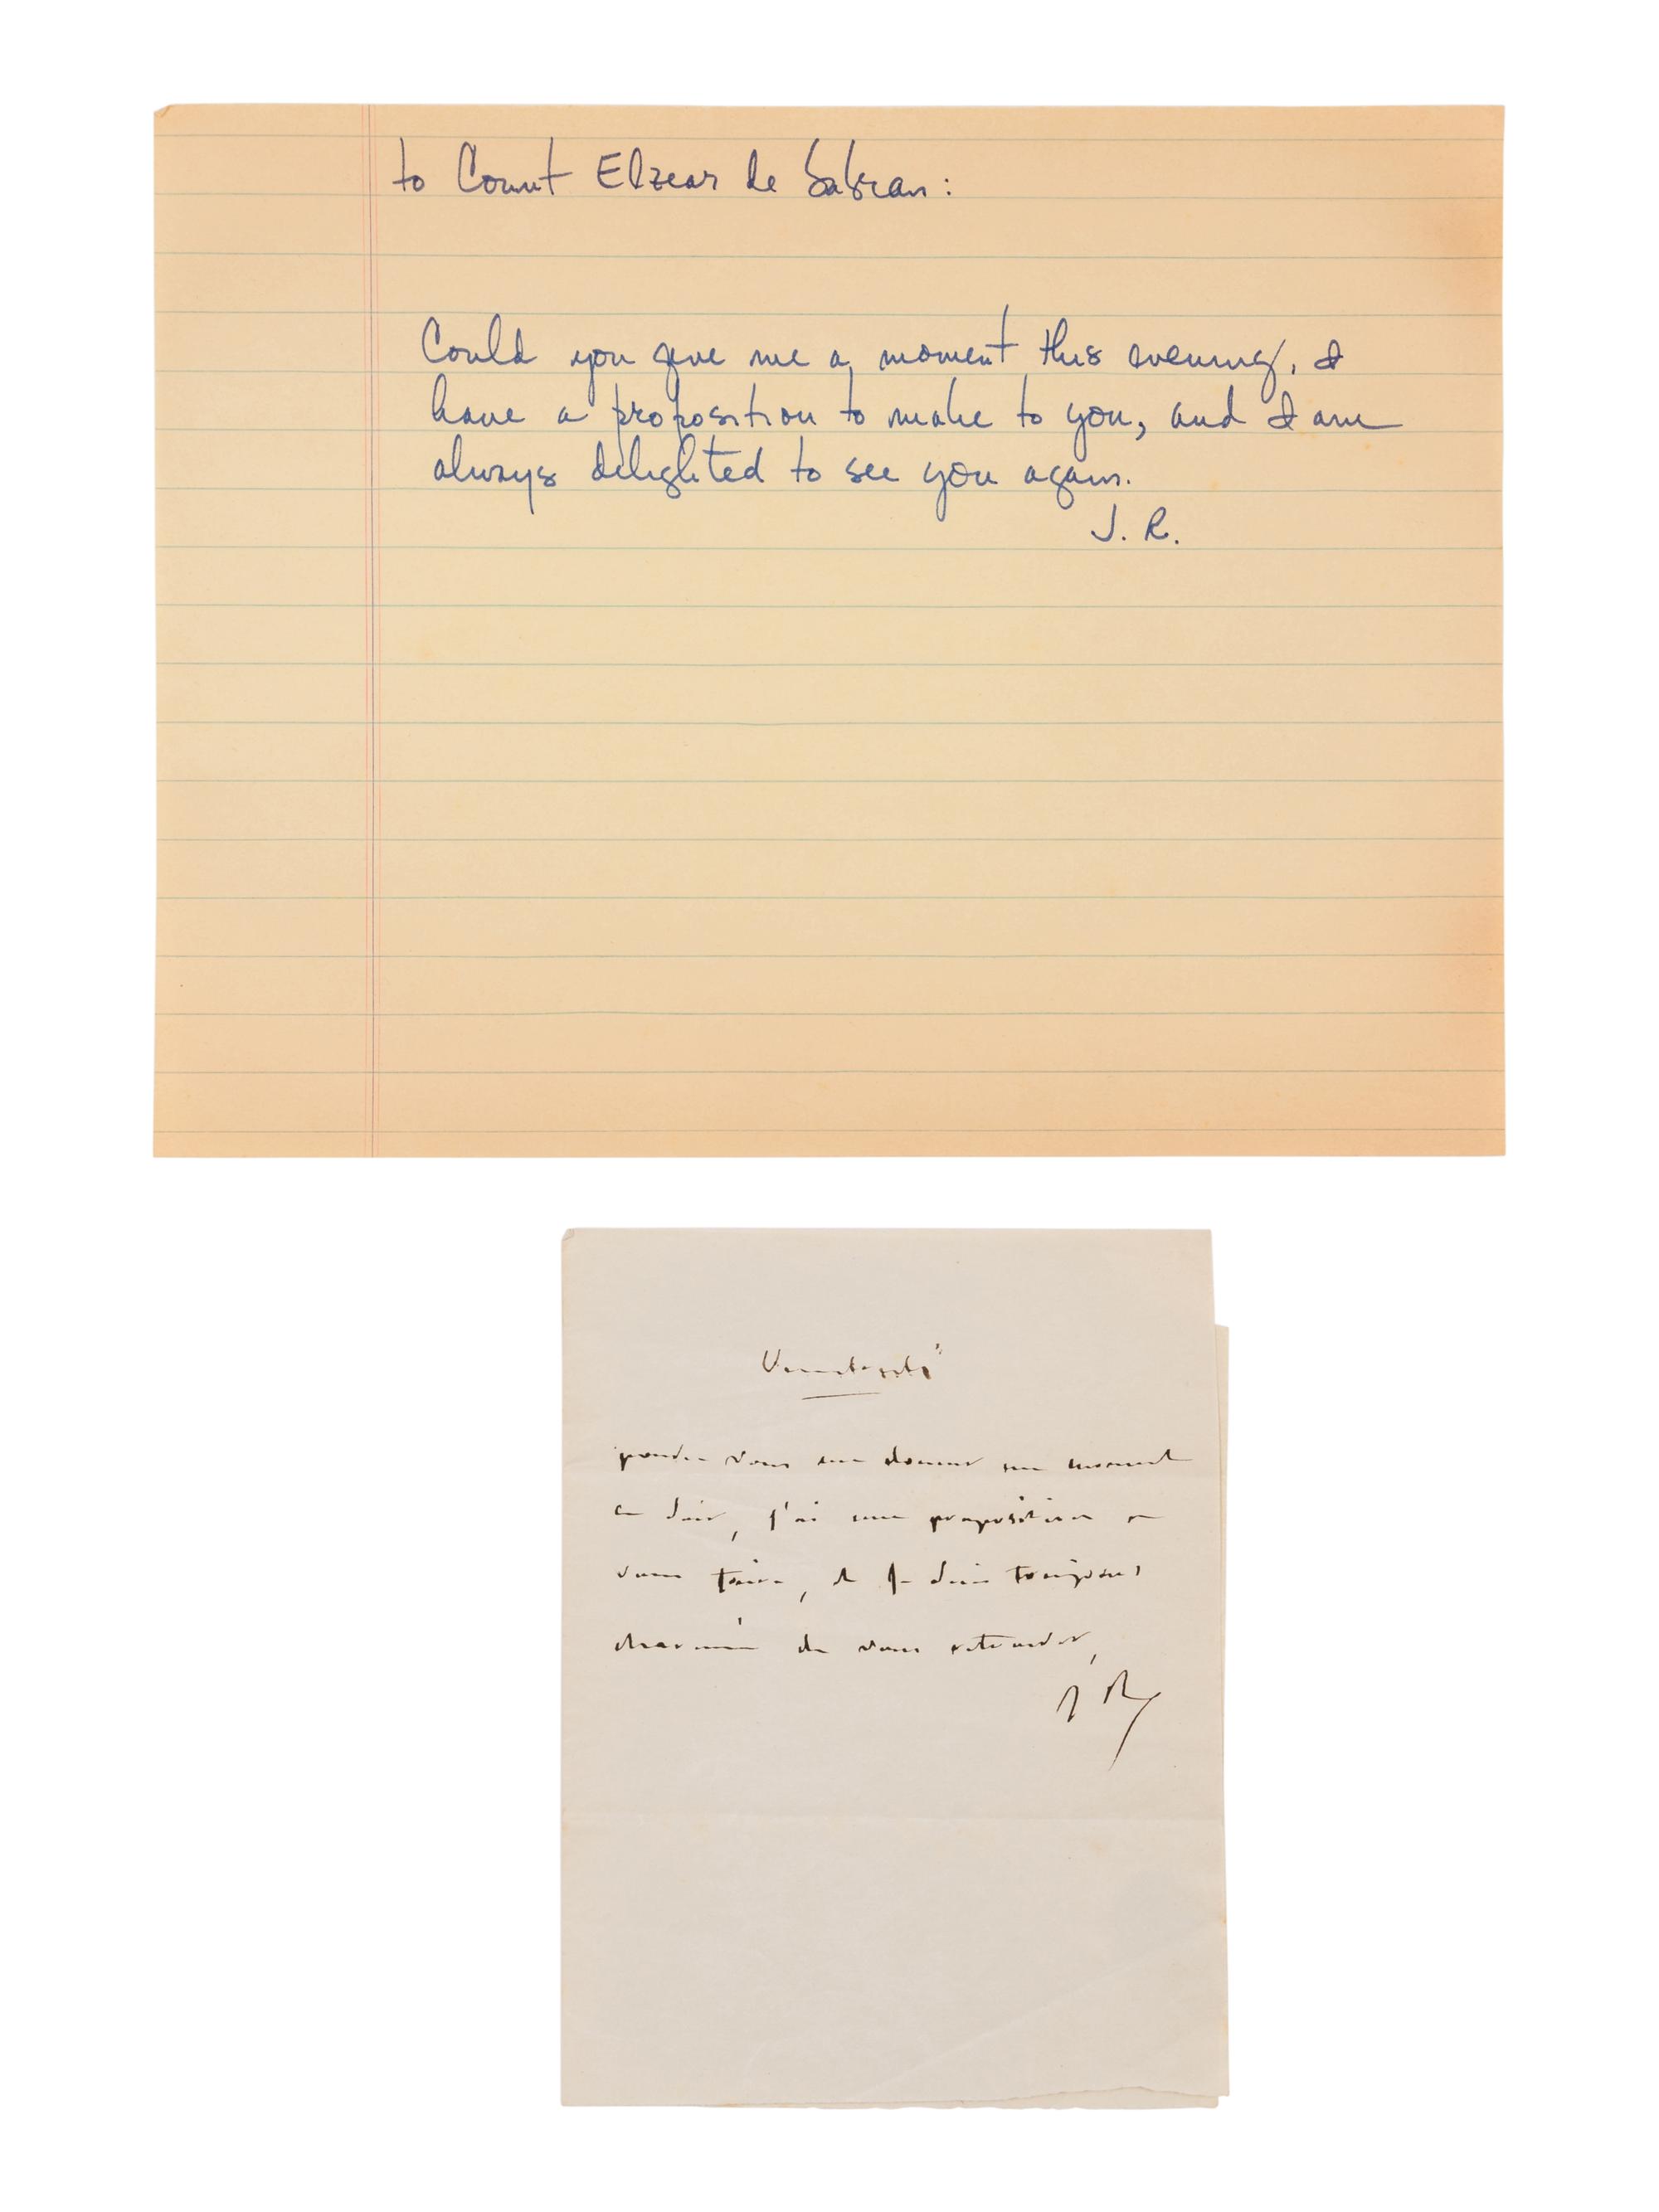 to Count Elzear de Sabran:
Could you give me a moment this evening, I
have a proposition to make to you, and I am
always delighted to see you again.
J. R.
vous me donner un moment
ce soir, j'ai une proposition a
vous faire, et je suis toujours
charmée de vous
J R